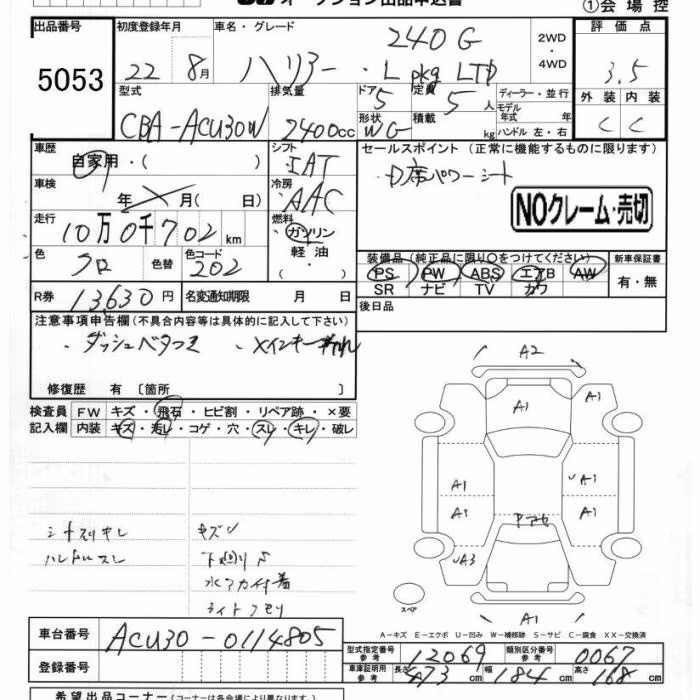 オークション出品申込書 ①会場控
出品番号 初度登録年月 車名・グレード 評価点
5053 22 8月 ハリアー 240G L pkg LTD 2WD・4WD 3.5
型式 排気量 ドア 定員 ディーラー・並行 外装 内装
CBA-ACU30W 2400cc 5 5人 モデル年式 年 C C
形状 積載
WG kg ハンドル 左・右
車歴 シフト セールスポイント (正常に機能するものに限ります)
自家用・( ) IAT ・D席パワーシート
車検 冷房
年 月( 日) AAC NOクレーム・売切
走行 燃料
10万0千702km ・ガソリン
軽油
・( )
色 色替 色コード 装備品(純正品に限り○をつけてください) 新車保証書
クロ 202 PS PW ABS エアB AW 有・無
SR ナビ TV カワ
R券 名変通知期限 月 日 後日品
13630円
注意事項申告欄(不具合内容等は具体的に記入して下さい)
・ダッシュベタつき ・メインキー
修復歴 有 [箇所 ]
検査員 FW キズ・飛石・ヒビ割・リペア跡・×要
記入欄 内装 キズ・汚レ・コゲ・穴・スレ・キレ・破レ
シートスリキレ キズU
ハンドルスレ 下回りS
水アカ付着
ライトクモリ
A2
A1 A1
A1 A1
A1 A1
UA3
スペア A1
A-キズ E-エクボ U-凹み W-補修跡 S-サビ C-腐食 XX-交換済
車台番号 ACU30-0114805
登録番号
型式指定番号 参考 12069 類別区分番号 参考 0067
車庫証明用 参考 長さ 473cm 幅 184cm 高さ 168cm
希望出品コーナー(コーナーは各会場により異なります。)